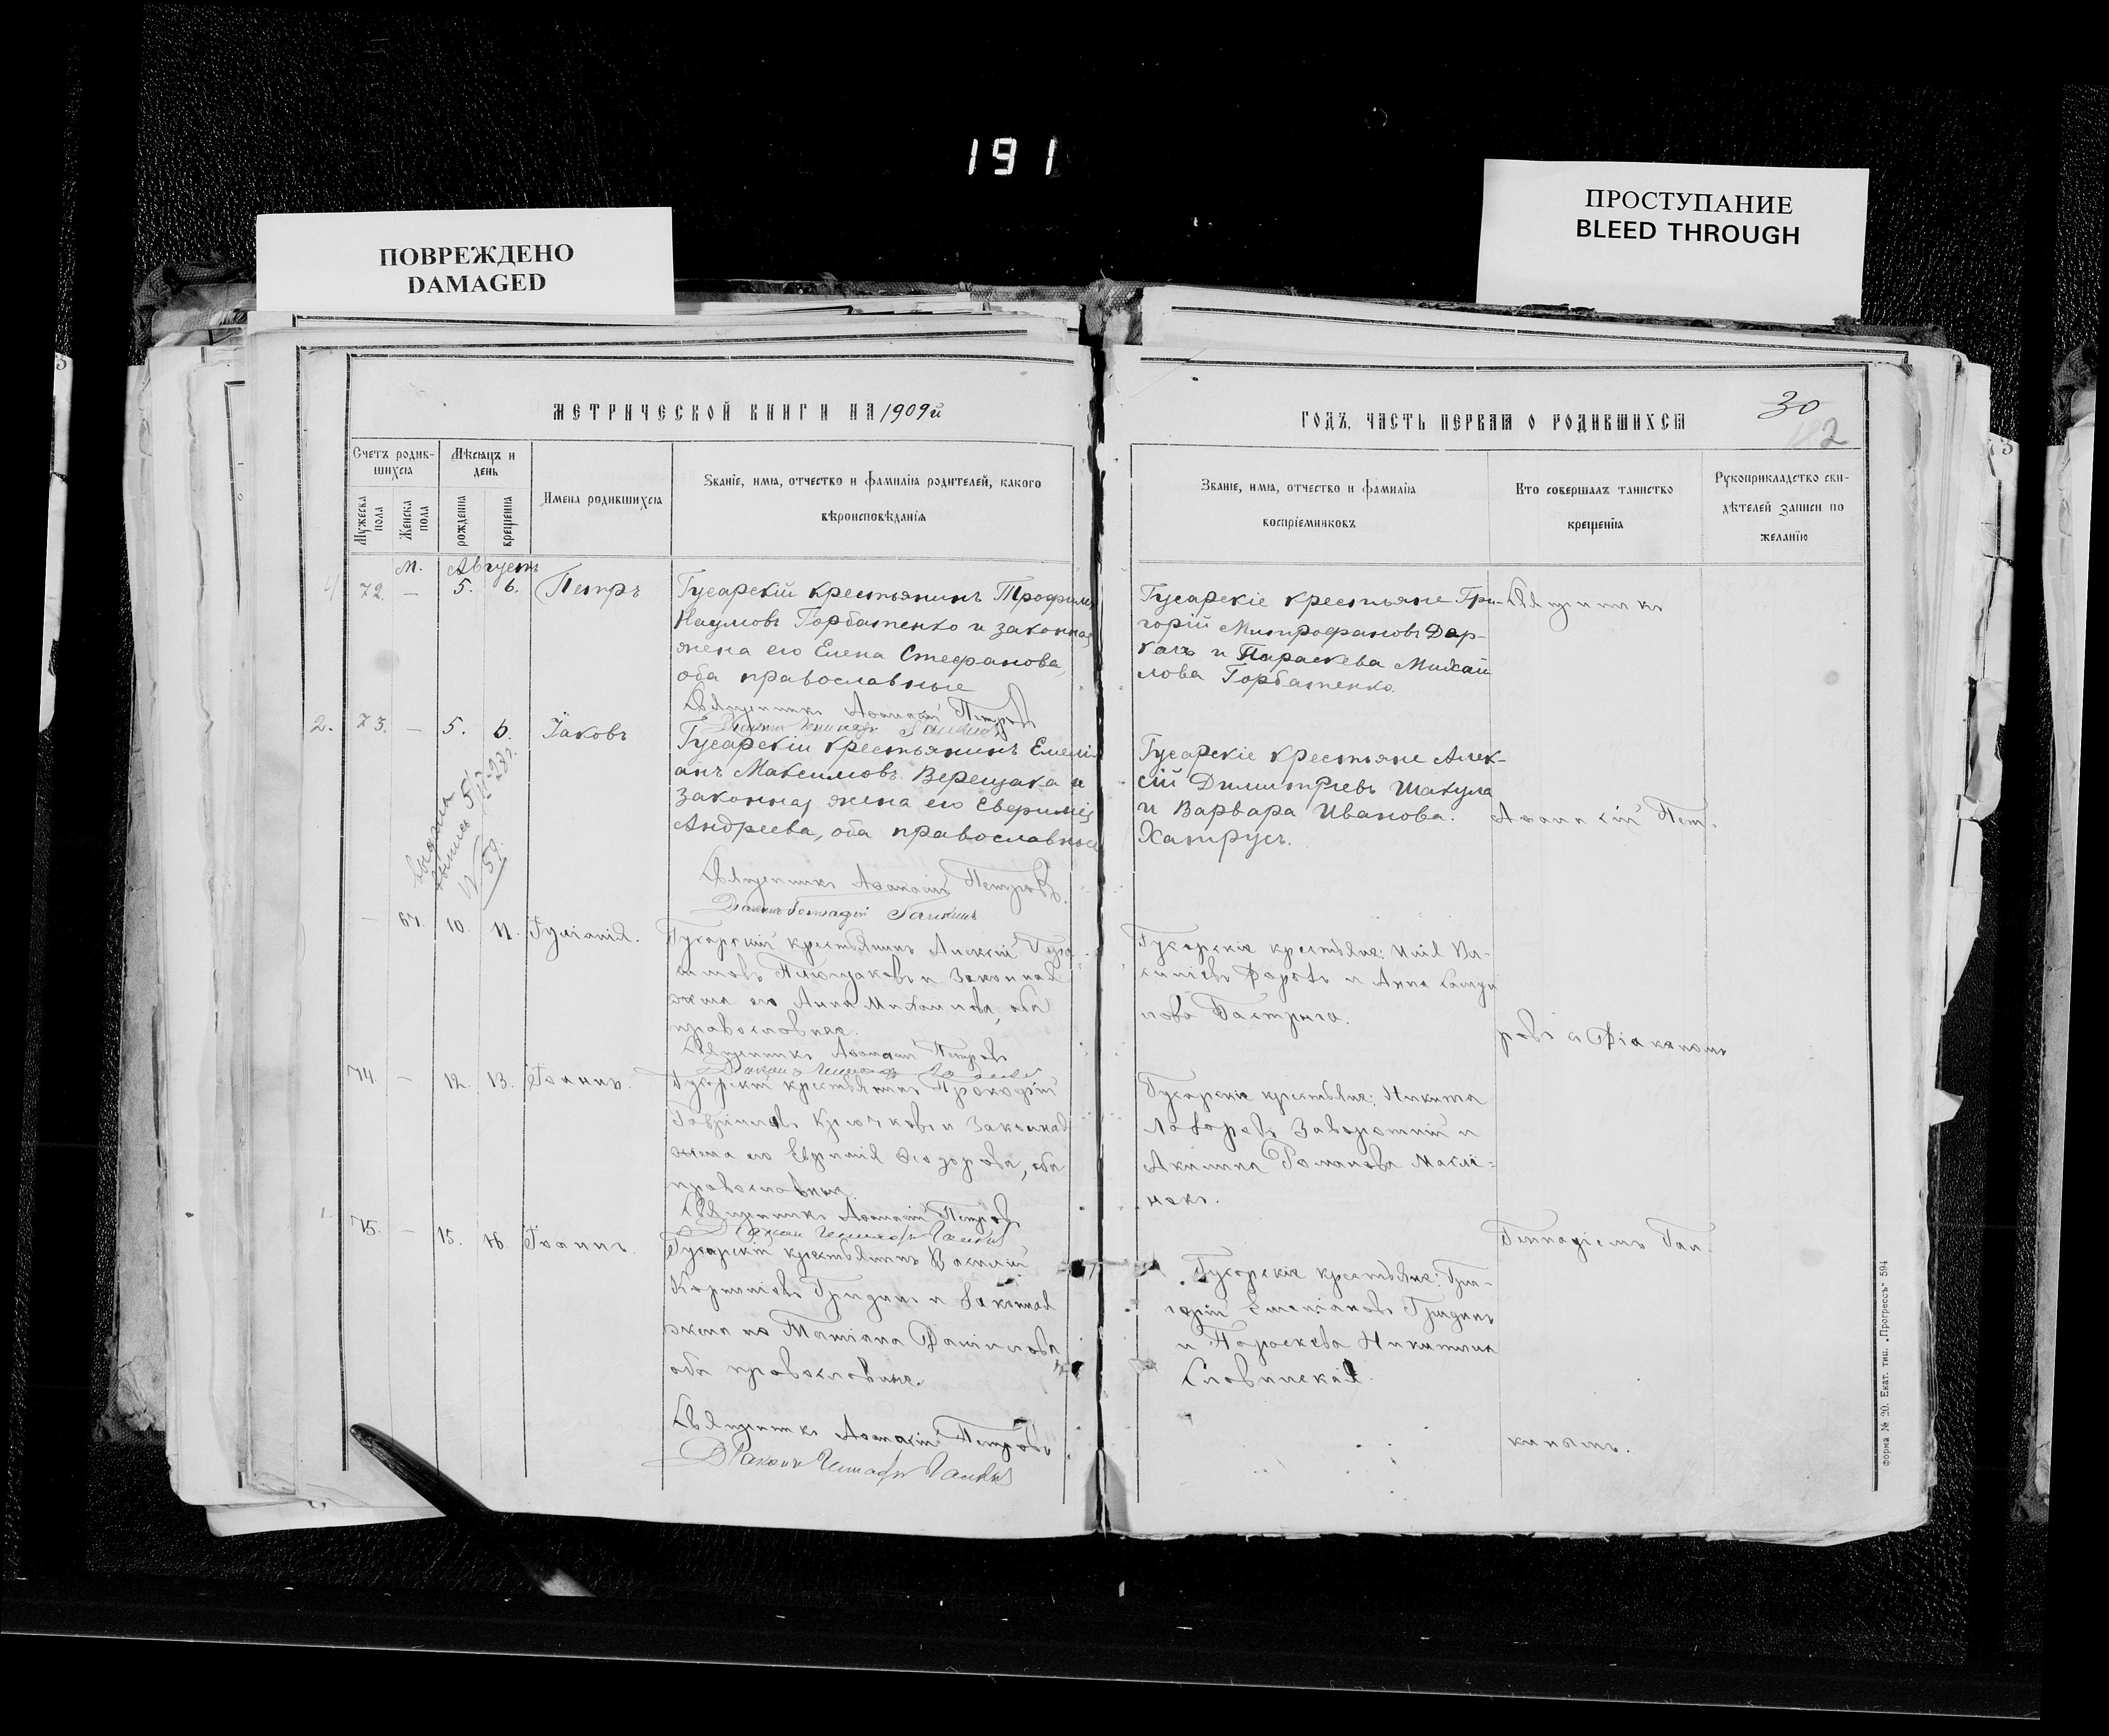 191
ПОВРЕЖДЕНО
DAMAGED
ПРОСТУПАНИЕ
BLEED THROUGH
МЕТРИЧЕСКОЙ КНИГИ НА 1909й
ГОДЪ, ЧАСТЬ ПЕРВАЯ О РОДИВШИХСЯ
30
2
Счетъ родив-
шихся
Мѣсяцъ и
день
Имена родившихся
Званіе, имя, отчество и фамилія родителей, какого
вѣроисповѣданія
Мужеска
пола
Женска
пола
рожденія
крещенія
Званіе, имя, отчество и фамилія
воспріемниковъ
Кто совершалъ таинство
крещенія
Рукоприкладство сви-
дѣтелей записи по
желанію
м. Августъ
72. — 5. 6. Петръ
Гусарскій крестьянинъ Трофимъ
Наумовъ Горбатенко и законная
жена его Елена Стефанова,
оба православные
Священникъ Аѳанасій Петровъ
Гусарскіе крестьяне Гри-
горій Митрофановъ Дер-
качъ и Параскева Михай
лова Горбатенко.
Священникъ
2. 73. — 5. 6. Іаковъ
Гусарскій крестьянинъ Емелі-
анъ Максимовъ Верещака и
законная жена его Евфимія
Андреева, оба православные
Священникъ Аѳанасій Петровъ.
Діаконъ Геннадій Галкинъ
Гусарскіе крестьяне Алек-
сій Димитріевъ Шакула
и Варвара Иванова.
Хатрусъ.
Аѳанасій Пет-
— 67. 10. 11. Іуліанія.
Гусарскій крестьянинъ Алексій
и законная
жена его Анна Михаилова, оба
православные.
Священникъ Аѳанасій Петровъ
Гусарскіе крестьяне: Ва-
силіевъ и Анна Самуи
лова Бастрыга.
ровъ съ Діакономъ
74. — 12. 13. Іоаннъ.
Гусарскій крестьянинъ Прокофій
Гавриловъ Крючковъ и законная
жена его Евфимія Ѳеодорова, оба
православные.
Священникъ Аѳанасій Петровъ
Гусарскіе крестьяне: Никита
Лазаревъ Заворотній и
Акилина Романова Масли-
Геннадіемъ Гал-
75. — 15. 16. Іоаннъ.
Гусарскій крестьянинъ Василій
Корниліевъ Гридинъ и законная
жена его Татіана Даніилова
оба православные.
Священникъ Аѳанасій Петровъ
Діаконъ Геннадій Галкинъ
Гусарскіе крестьяне: Гри-
горій Емеліановъ Гридинъ
и Параскева Никитина
Словинская.
кинымъ.
Форма № 20. Екат. тип. „Прогрессъ" 594